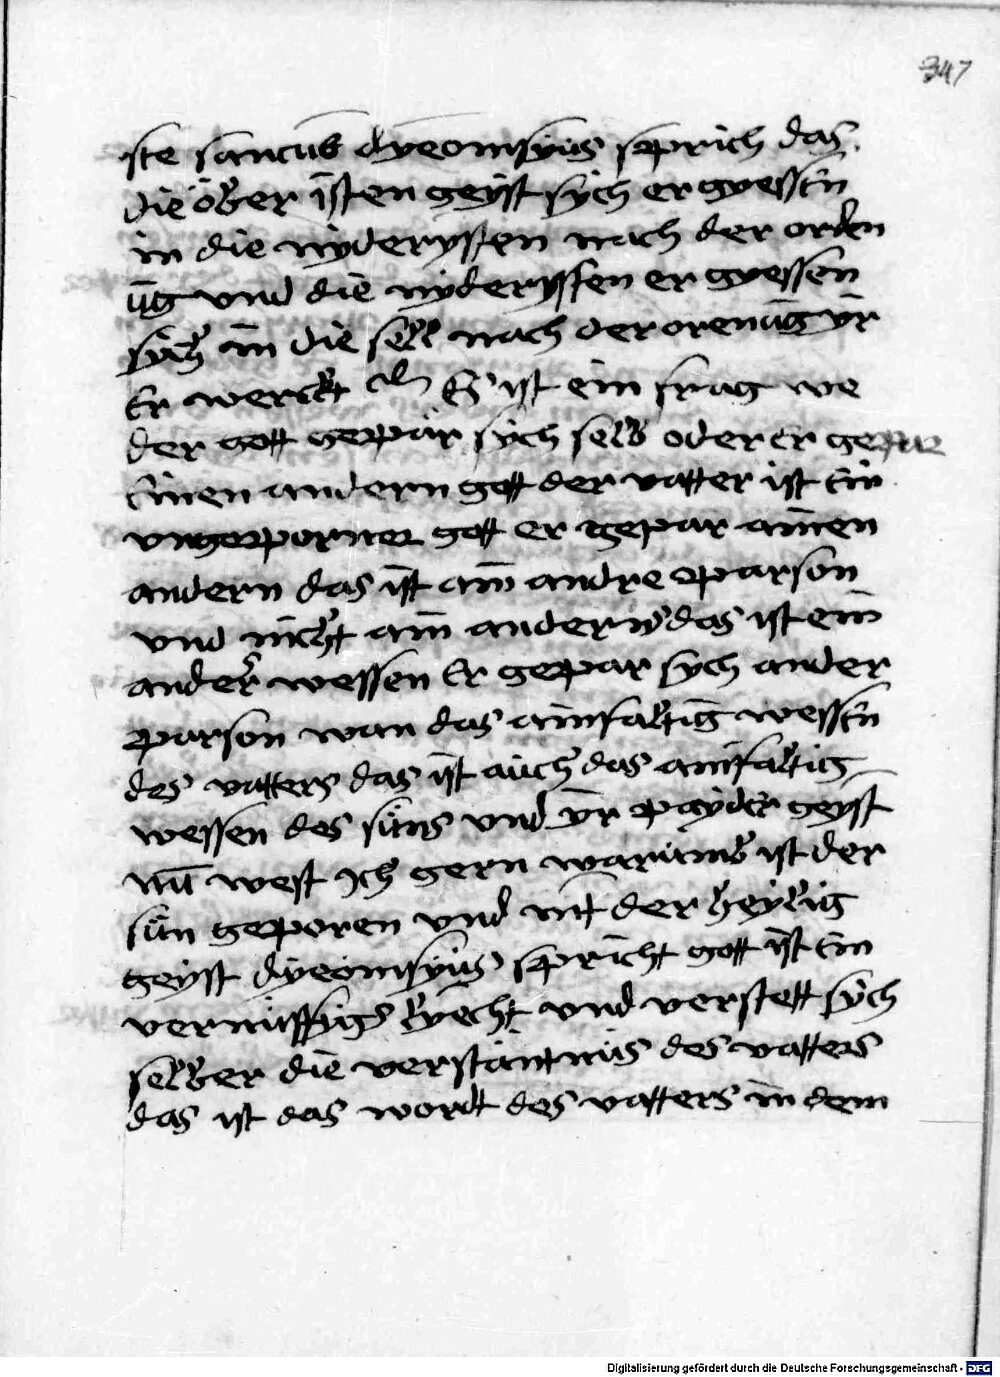 347
ste sanctus dyeonisyus sprich das
die öber isten geyst sych er gvessen
in die nyderysten nach der orden
ūg vnd die nyderysten er gvessen
sych in die sell nach der orenūg yr
Er werckt Es ist ein frag we
der gott gepär sych selb oder er gepar
einen andern gott der vatter ist ein
vngeporner gott er gepar ainen
andern das ist ain andre parson
vnd nicht ain anders das ist ein
anderer wessen Er gepar sych ander
parson wan das ainfaltig wessen
des vatters das ist auch das ainfaltig
wessen des süns vnd yr payder geyst
nū west ich gern warumb ist der
sün geporen vnd nit der heylig
geyst dyeonisyus spricht gott ist ein
vernüfftigs lyecht vnd verstett sych
selber die verstäntnüs des vatters
das ist das wordt des vatters in dem
Digitalisierung gefördert durch die Deutsche Forschungsgemeinschaft - DFG